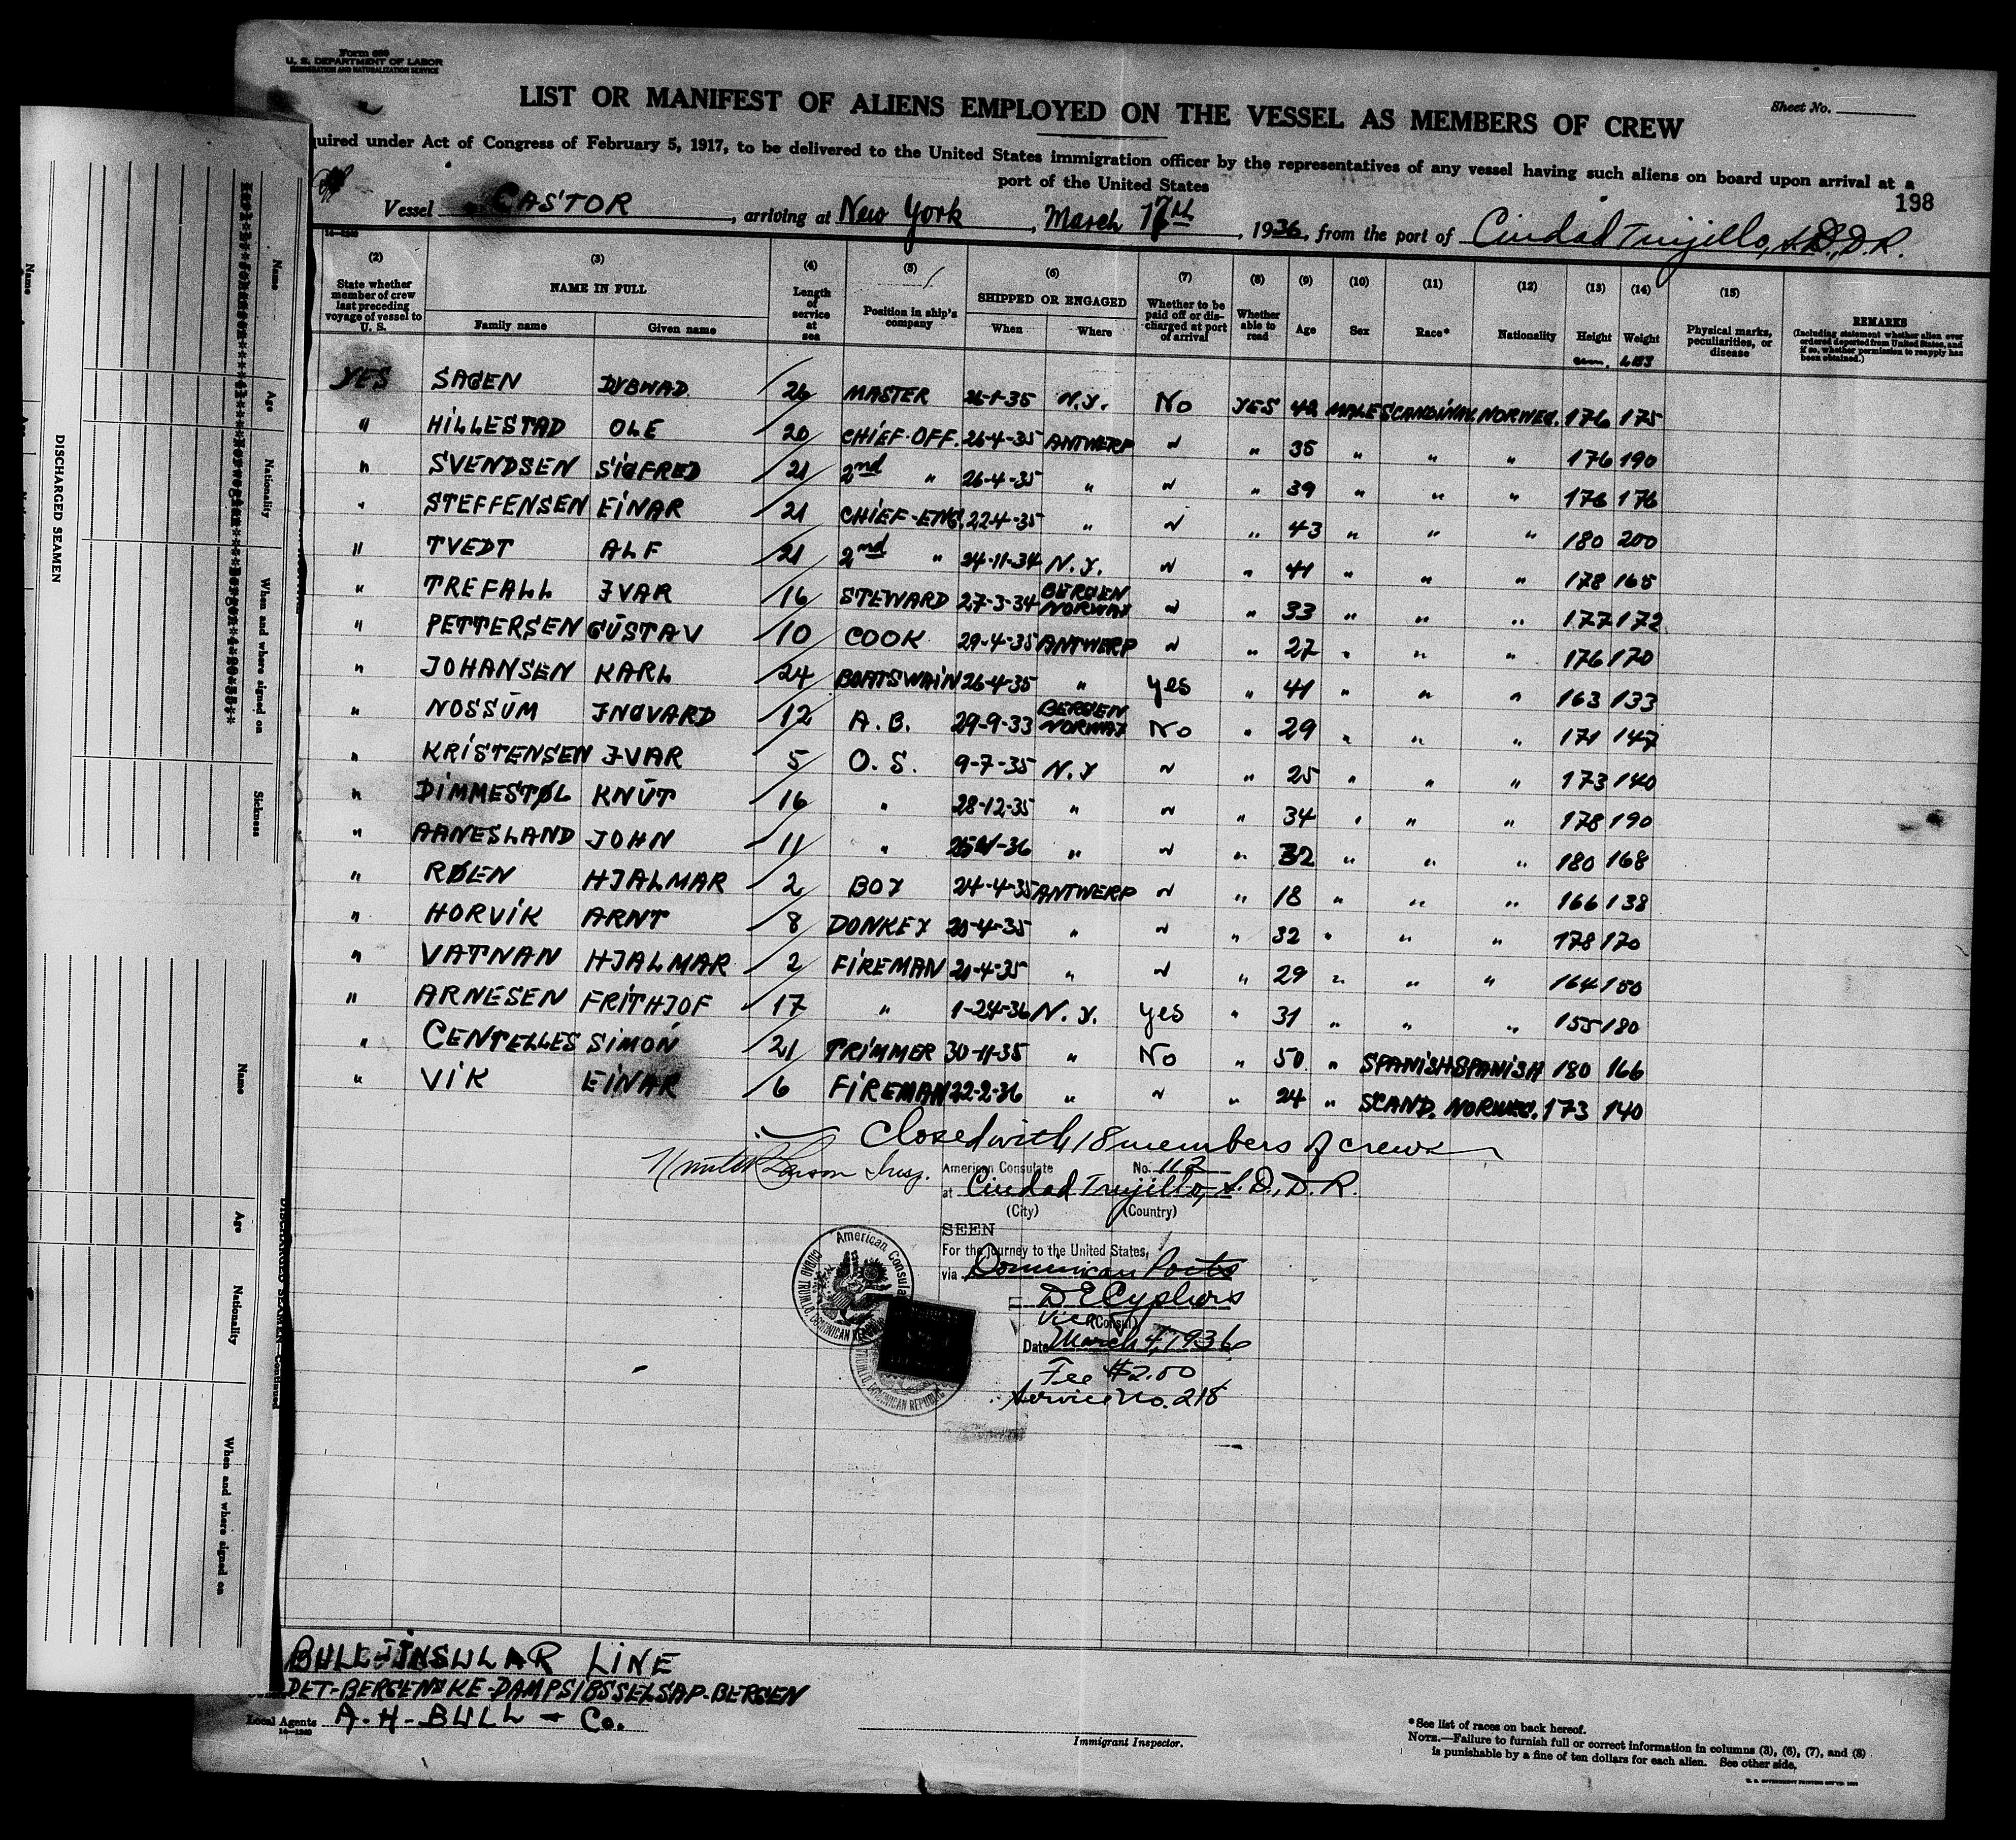 Form 680
U. S. DEPARTMENT OF LABOR
IMMIGRATION AND NATURALIZATION SERVICE
Sheet No.
LIST OR MANIFEST OF ALIENS EMPLOYED ON THE VESSEL AS MEMBERS OF CREW
quired under Act of Congress of February 5, 1917, to be delivered to the United States immigration officer by the representatives of any vessel having such aliens on board upon arrival at a
port of the United States
198
Vessel CASTOR, arriving at New York, March 17th, 1936, from the port of Ciudad Trujillo, S.D., D.R.
14—1240
(2) (3) (4) (5) (6) (7) (8) (9) (10) (11) (12) (13) (14) (15)
State whether member of crew last preceding voyage of vessel to U. S. NAME IN FULL Family name Given name Length of service at sea Position in ship's company SHIPPED OR ENGAGED When Where Whether to be paid off or discharged at port of arrival Whether able to read Age Sex Race* Nationality Height Weight Physical marks, peculiarities, or disease REMARKS (Including statement whether alien ever ordered deported from United States, and if so, whether permission to reapply has been obtained.)
cm. LBS
YES SAGEN DYBWAD 26 MASTER 26-1-35 N.Y. No YES 42 MALE SCANDINAV. NORWEG. 176 175
" HILLESTAD OLE 20 CHIEF-OFF. 26-4-35 ANTWERP " " 35 " " " 176 190
" SVENDSEN SIGFRED 21 2nd " 26-4-35 " " " 39 " " " 176 176
" STEFFENSEN EINAR 21 CHIEF-ENG. 22-4-35 " " " 43 " " " 180 200
" TVEDT ALF 21 2nd " 24-11-34 N.Y. " " 41 " " " 178 165
" TREFALL IVAR 16 STEWARD 27-3-34 BERGEN NORWAY " " 33 " " " 177 172
" PETTERSEN GŪSTAV 10 COOK 29-4-35 ANTWERP " " 27 " " " 176 170
" JOHANSEN KARL 24 BOATSWAIN 26-4-35 " yes " 41 " " " 163 133
" NOSSŪM INGVARD 12 A.B. 29-9-33 BERGEN NORWAY No " 29 " " " 171 147
" KRISTENSEN IVAR 5 O.S. 9-7-35 N.Y " " 25 " " " 173 140
" DIMMESTØL KNŪT 16 " 28-12-35 " " " 34 " " " 178 190
" AANESLAND JOHN 11 " " " " 32 " " " 180 168
" RØEN HJALMAR 2 BOY 24-4-35 ANTWERP " " 18 " " " 166 138
" HORVIK ARNT 8 DONKEY 20-4-35 " " " 32 " " " 178 170
" VATNAN HJALMAR 2 FIREMAN 20-4-35 " " " 29 " " " 164 150
" ARNESEN FRITHJOF 17 " 1-24-36 N.Y. yes " 31 " " " 155 180
" CENTELLES SIMÓN 21 TRIMMER 30-11-35 " No " 50 " SPANISH SPANISH 180 166
" VIK EINAR 6 FIREMAN 22-2-36 " " " 24 " SCAND. NORWEG. 173 140
Closed with 18 members of crew
Larson Insp.
American Consulate No. 112
at Ciudad Trujillo, S.D., D.R.
(City) (Country)
SEEN
For the journey to the United States,
via Dominican Ports
D E Cyphers
Vice (Consul)
Date March 4, 1936
Fee $2.50
Service No. 218
American Consulate
CIUDAD TRUJILLO, DOMINICAN REPUBLIC
BULL-INSULAR LINE
DET-BERGENSKE-DAMPSIBSSELSAP-BERGEN
Local Agents A.H. BULL & Co.
14—1240
Immigrant Inspector.
*See list of races on back hereof.
NOTE.—Failure to furnish full or correct information in columns (3), (6), (7), and (8)
is punishable by a fine of ten dollars for each alien. See other side.
U. S. GOVERNMENT PRINTING OFFICE
DISCHARGED SEAMEN
Name
Age
Nationality
When and where signed on
Sickness
DISCHARGED SEAMEN—Continued
Name
Age
Nationality
When and where signed on